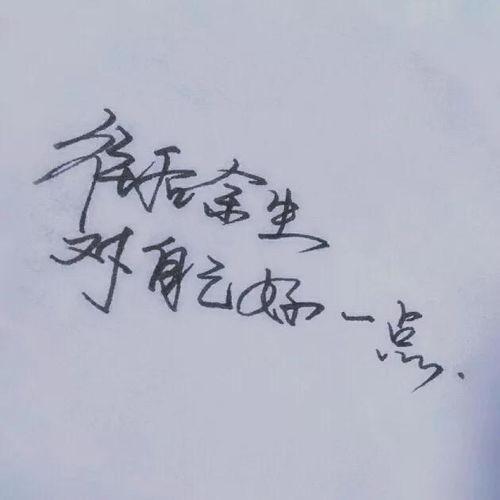 往后余生
对自己好一点.